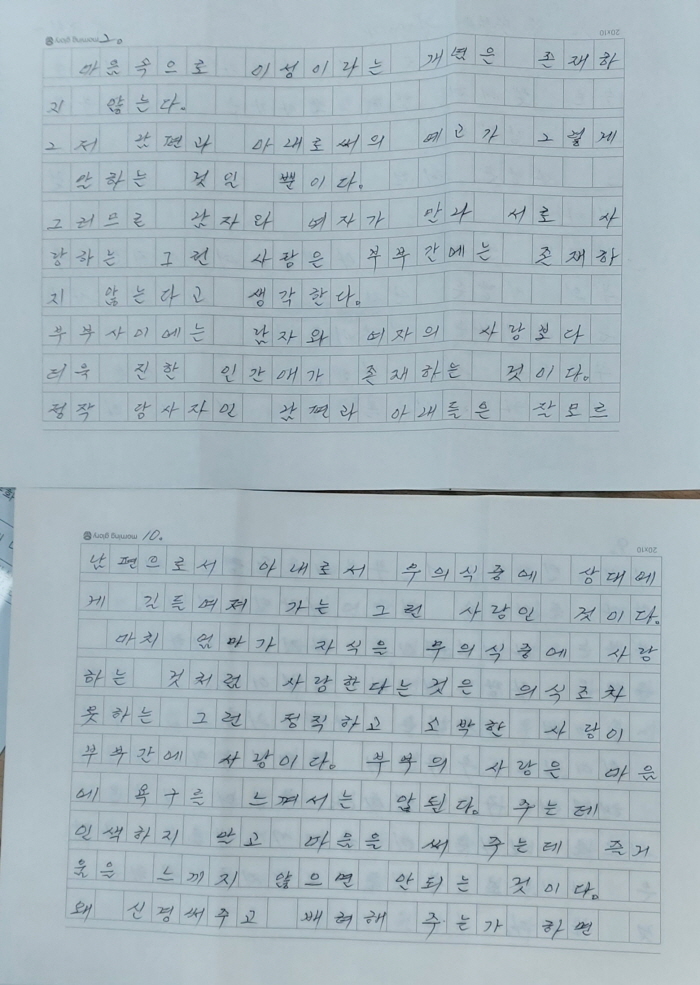 morning glory 2.
20x10
마음속으로 이성이라는 개념은 존재하
지 않는다.
그저 남편과 아내로써의 예고가 그렇게
안하는 것일 뿐이다.
그러므로 남자와 여자가 만나 서로 사
랑하는 그런 사랑은 부부간에는 존재하
지 않는다고 생각한다.
부부사이에는 남자와 여자의 사랑보다
더욱 진한 인간애가 존재하는 것이다.
정작 당사자인 남편과 아내들은 잘모르
morning glory 10.
20x10
남편으로서 아내로서 무의식중에 상대에
게 길들여져 가는 그런 사랑인 것이다.
마치 엄마가 자식을 무의식중에 사랑
하는 것처럼 사랑한다는 것은 의식조차
못하는 그런 정직하고 소박한 사랑이
부부간에 사랑이다. 부부의 사랑은 마음
에 욕구를 느껴서는 안된다. 주는데
인색하지 안고 마음을 써 주는데 즐거
움을 느끼지 않으면 안되는 것이다.
왜 신경써주고 배려해 주는가 하면